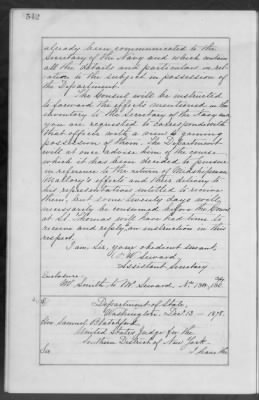 542
already been communicated to the
Secretary of the Navy and which contain
all the details and particulars in rel-
ation to the subject in possession of
the Department.
The Consul will be instructed
to forward the effects mentioned in the
inventory to the Secretary of the Navy and
you are requested to correspond with
that officer with a view to gaining
possession of them. The Department
will at once advise him of the course
which it has been decided to pursue
in reference to the return of Midshipman
Mallory's effects and their delivery to
his representatives entitled to receive
them, but some twenty days will
necessarily be consumed before the Consul
at St. Thomas will have had time to
receive and reply, an instruction in this
respect.
I am, Sir, your obedient servant,
F. W. Seward,
Assistant Secretary
Enclosure:
Mr. Smith to Mr. Seward, No.
Department of State,
Washington, Dec. 13 - 1878.
Hon. Samuel Blatchford,
United States Judge for the
Southern District of New York.
Sir
I have the